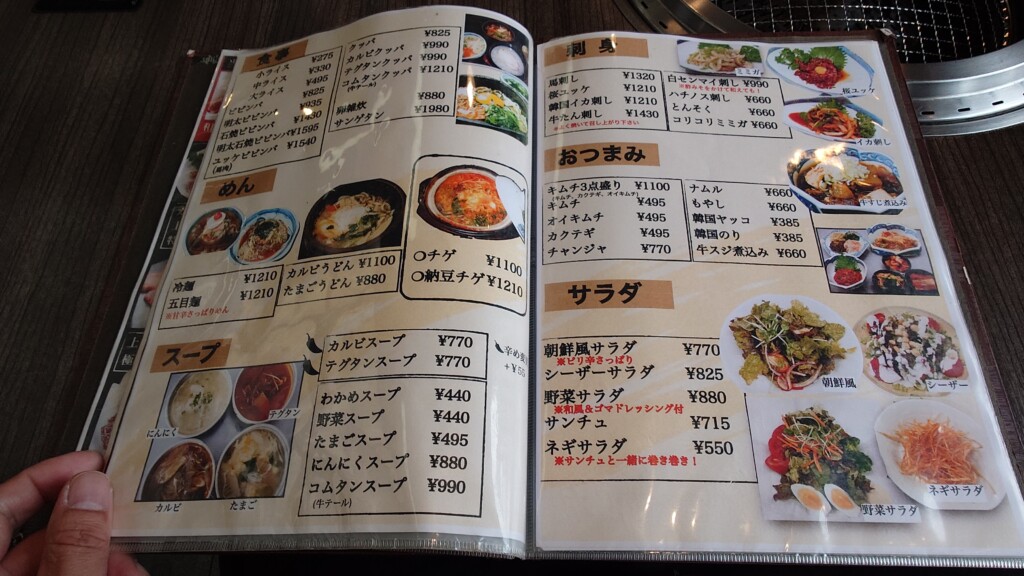 食事
小ライス ¥275
中ライス ¥330
大ライス ¥495
ビビンバ ¥825
明太ビビンバ ¥935
石焼ビビンバ
明太石焼ビビンバ ¥1595
ユッケビビンバ ¥1540
クッパ ¥825
カルビクッパ ¥990
テグタンクッパ ¥990
コムタンクッパ ¥1210
(牛テール)
卵雑炊 ¥880
サンゲタン ¥1980
めん
冷麺 ¥1210
五目麺 ¥1210
※甘辛さっぱりめん
カルビうどん ¥1100
たまごうどん ¥880
○チゲ ¥1100
○納豆チゲ ¥1210
スープ
にんにく
テグタン
カルビ
たまご
カルビスープ ¥770
テグタンスープ ¥770
わかめスープ ¥440
野菜スープ ¥440
たまごスープ ¥495
にんにくスープ ¥880
コムタンスープ ¥990
(牛テール)
刺身
馬刺し ¥1320
桜ユッケ ¥1210
韓国イカ刺し ¥1210
牛たん刺し ¥1430
※よく焼いて召し上がり下さい
白センマイ刺し ¥990
※酢みそをかけて和えても!
ハチノス刺し ¥660
とんそく ¥660
コリコリミミガ ¥660
ミミガー
桜ユッケ
イカ刺し
おつまみ
キムチ3点盛り ¥1100
(キムチ、カクテギ、オイキムチ)
キムチ ¥495
オイキムチ ¥495
カクテギ ¥495
チャンジャ ¥770
ナムル ¥660
もやし ¥660
韓国ヤッコ ¥385
韓国のり ¥385
牛スジ煮込み ¥660
牛すじ煮込み
サラダ
朝鮮風サラダ ¥770
※ピリ辛さっぱり
シーザーサラダ ¥825
野菜サラダ ¥880
※和風&ゴマドレッシング付
サンチュ ¥715
ネギサラダ ¥550
※サンチュと一緒に巻き巻き!
朝鮮風
シーザー
野菜サラダ
ネギサラダ